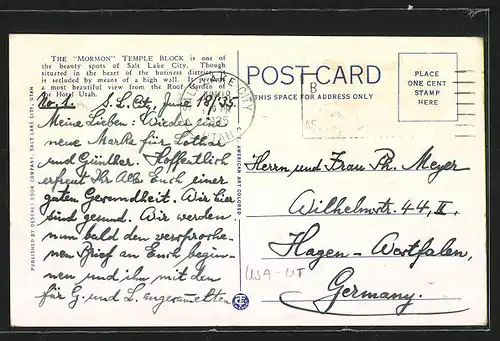 THE "MORMON" TEMPLE BLOCK is one of
the beauty spots of Salt Lake City. Though
situated in the heart of the business district, it
is secluded by means of a high wall. It presents
a most beautiful view from the Roof Garden of
the Hotel Utah.
No. 1. S. L. City, June 18/35.
Meine Lieben: Wieder eine
neue Marke für Lothar
und Günther. Hoffentlich
erfreut Ihr Alle Euch einer
guten Gesundheit. Wir hier
sind gesund. Wir werden
nun bald den versproche-
nen Brief an Euch begin-
nen und ihn mit den
für G. und L. angesammelten
PUBLISHED BY DESERET BOOK COMPANY, SALT LAKE CITY, UTAH
AMERICAN ART COLORED
SALT LAKE CITY
UTAH
POST CARD
THIS SPACE FOR ADDRESS ONLY
PLACE
ONE CENT
STAMP
HERE
Herrn und Frau Ph. Meyer
Wilhelmstr. 44, II,
Hagen-Westfalen,
Germany.
USA-UT